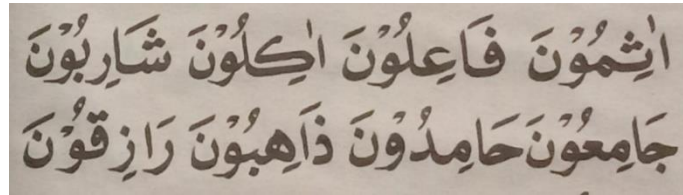 اٰثِمُوْنَ فَاعِلُوْنَ اٰكِلُوْنَ شَارِبُوْنَ
جَامِعُوْنَ حَامِدُوْنَ ذَاهِبُوْنَ رَازِقُوْنَ